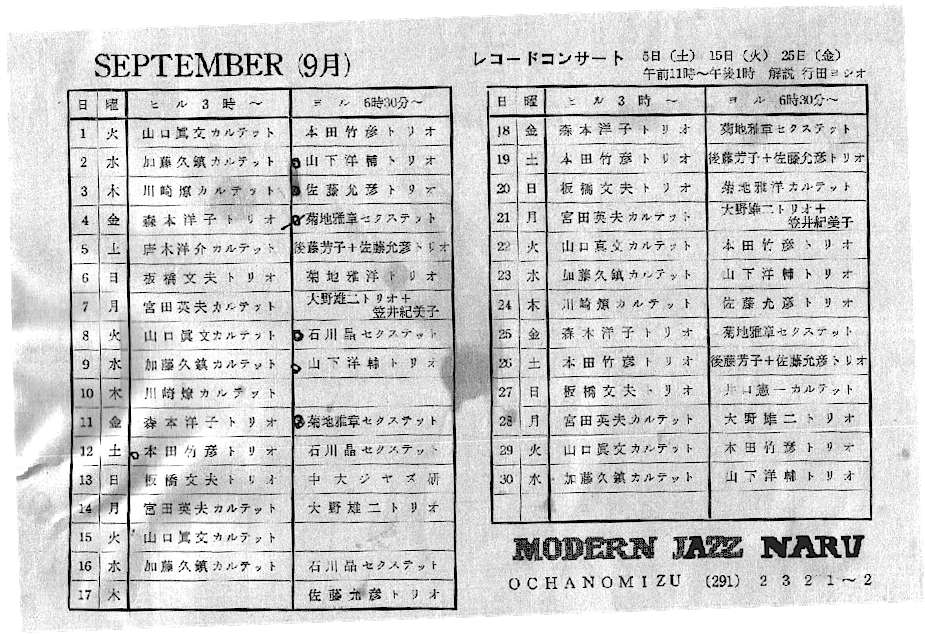 SEPTEMBER (9月)
日 曜 ヒル3時～ ヨル 6時30分～
1 火 山口眞文カルテット 本田竹彦トリオ
2 水 加藤久鎮カルテット 山下洋輔トリオ
3 木 川崎燎カルテット 佐藤允彦トリオ
4 金 森本洋子トリオ 菊地雅章セクステット
5 土 唐木洋介カルテット 後藤芳子+佐藤允彦トリオ
6 日 板橋文夫トリオ 菊地雅洋トリオ
7 月 宮田英夫カルテット 大野雄二トリオ+
笠井紀美子
8 火 山口眞文カルテット 石川晶セクステット
9 水 加藤久鎮カルテット 山下洋輔トリオ
10 木 川崎燎カルテット
11 金 森本洋子トリオ 菊地雅章セクステット
12 土 本田竹彦トリオ 石川晶セクステット
13 日 板橋文夫トリオ 中大ジャズ研
14 月 宮田英夫カルテット 大野雄二トリオ
15 火 山口眞文カルテット
16 水 加藤久鎮カルテット 石川晶セクステット
17 木 佐藤允彦トリオ
レコードコンサート 5日(土) 15日(火) 25日(金)
午前11時～午後1時 解説 行田ヨシオ
日 曜 ヒル3時～ ヨル 6時30分～
18 金 森本洋子トリオ 菊地雅章セクステット
19 土 本田竹彦トリオ 後藤芳子+佐藤允彦トリオ
20 日 板橋文夫トリオ 菊地雅洋カルテット
21 月 宮田英夫カルテット 大野雄二トリオ+
笠井紀美子
22 火 山口真文カルテット 本田竹彦トリオ
23 水 加藤久鎮カルテット 山下洋輔トリオ
24 木 川崎燎カルテット 佐藤允彦トリオ
25 金 森本洋子トリオ 菊地雅章セクステット
26 土 本田竹彦トリオ 後藤芳子+佐藤允彦トリオ
27 日 板橋文夫トリオ 井口憲一カルテット
28 月 宮田英夫カルテット 大野雄二トリオ
29 火 山口眞文カルテット 本田竹彦トリオ
30 水 加藤久鎮カルテット 山下洋輔トリオ
MODERN JAZZ NARU
OCHANOMIZU (291) 2321～2